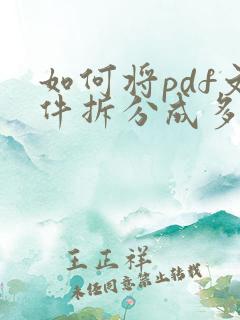 如何将pdf文
件拆分成多
王正祥
未经同意禁止转载